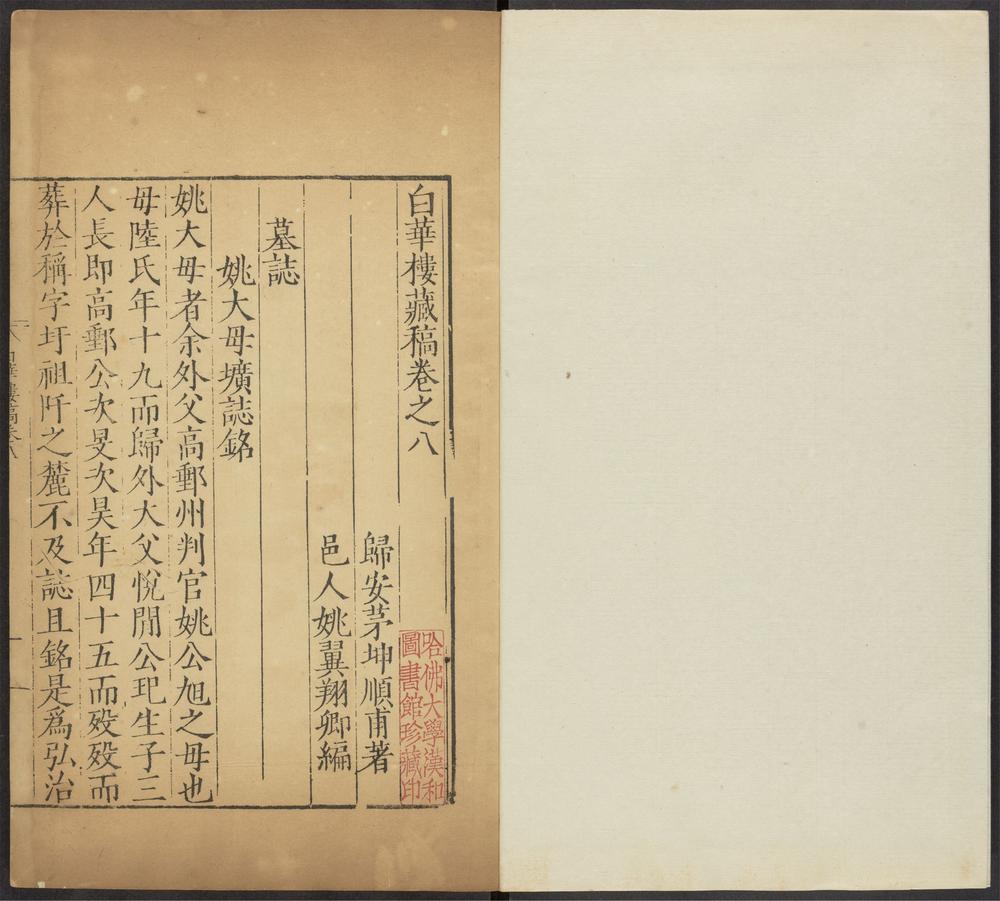 白華樓藏稿卷之八
歸安茅坤順甫著
邑人姚翼翔卿編
墓誌
姚大母壙誌銘
姚大母者余外父高郵州判官姚公旭之母也
母陸氏年十九而歸外大父悅閒公玘生子三
人長即高郵公次旻次昊年四十五而歿歿而
葬於稱字圩祖阡之麓不及誌且銘是爲弘治
哈佛大學漢和
圖書館珍藏印